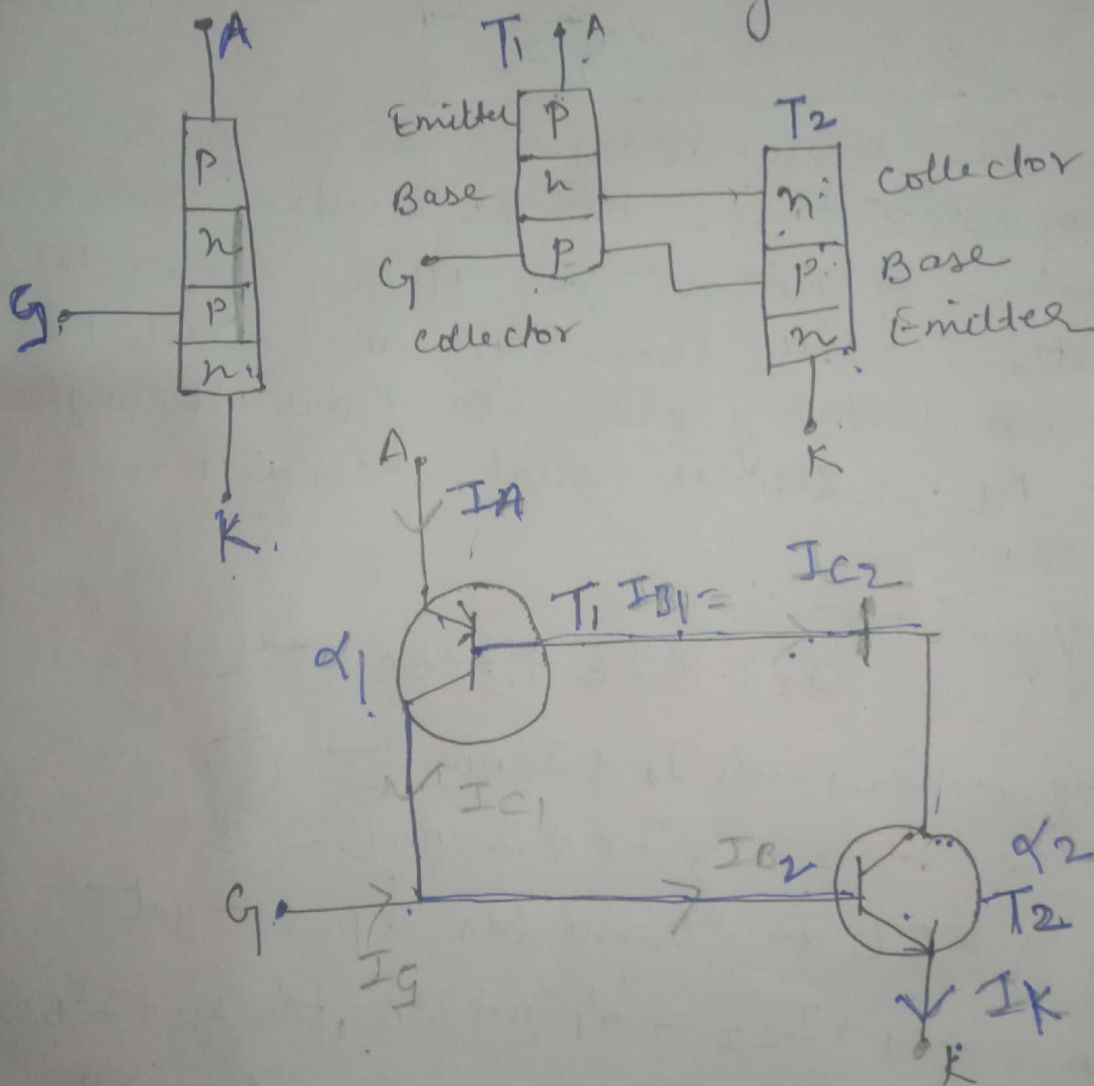 A
p
n
p
n
G
K.
T1 A
Emitter p
Base n
G p
Collector
T2
n Collector
p Base
n Emitter
K
A
IA
α1
T1 IB1 = IC2
IC1
G
IG
IB2
α2
T2
IK
K